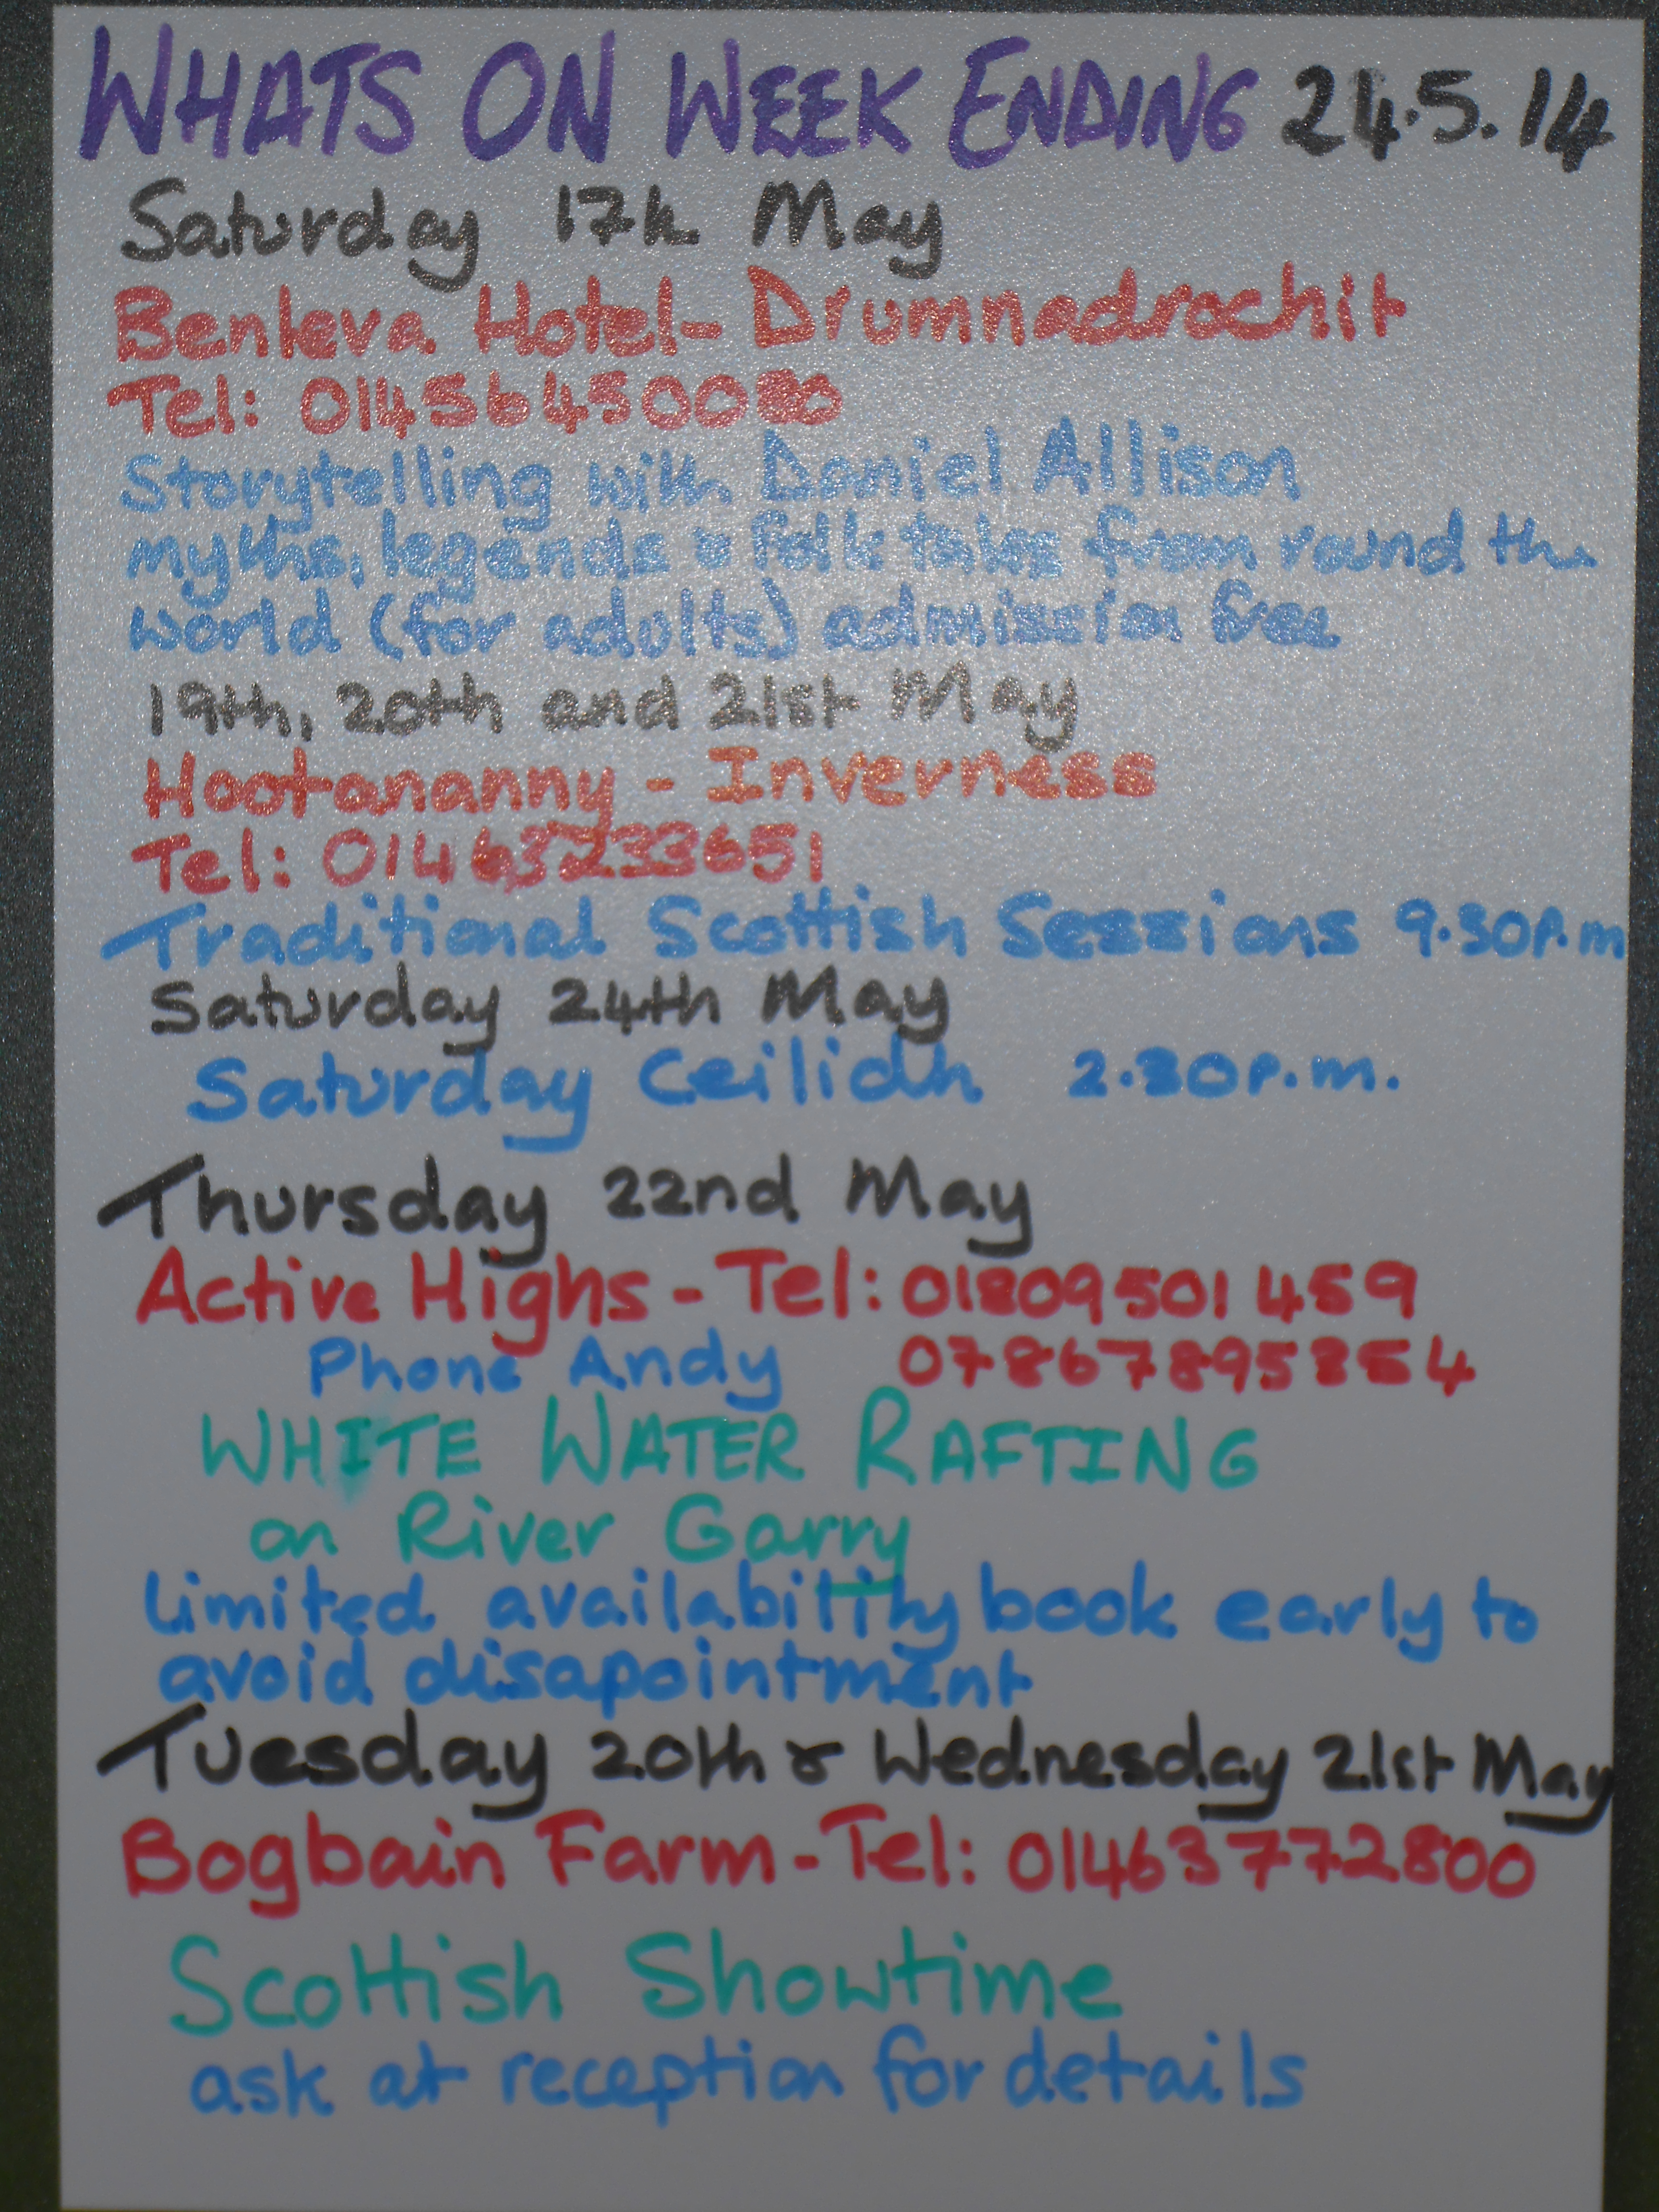 WHATS ON WEEK ENDING 24.5.14
Saturday 17th May
Benleva Hotel- Drumnadrochit
Tel: 01456450080
Storytelling with Daniel Allison
myths, legends & folk tales from round the
world (for adults) admission free
19th, 20th and 21st May
Hootananny - Inverness
Tel: 01463233651
Traditional Scottish Sessions 9.30p.m
Saturday 24th May
Saturday Ceilidh 2.30p.m.
Thursday 22nd May
Active Highs - Tel: 01809501459
Phone Andy
WHITE WATER RAFTING
on River Garry
Limited availability book early to
avoid disapointment
Tuesday 20th & Wednesday 21st May
Bogbain Farm - Tel: 01463772800
Scottish Showtime
ask at reception for details